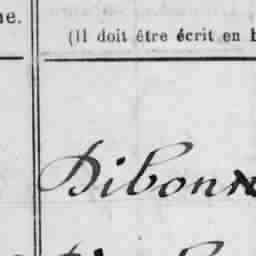 ne.
(Il doit être écrit en b
Dibonn